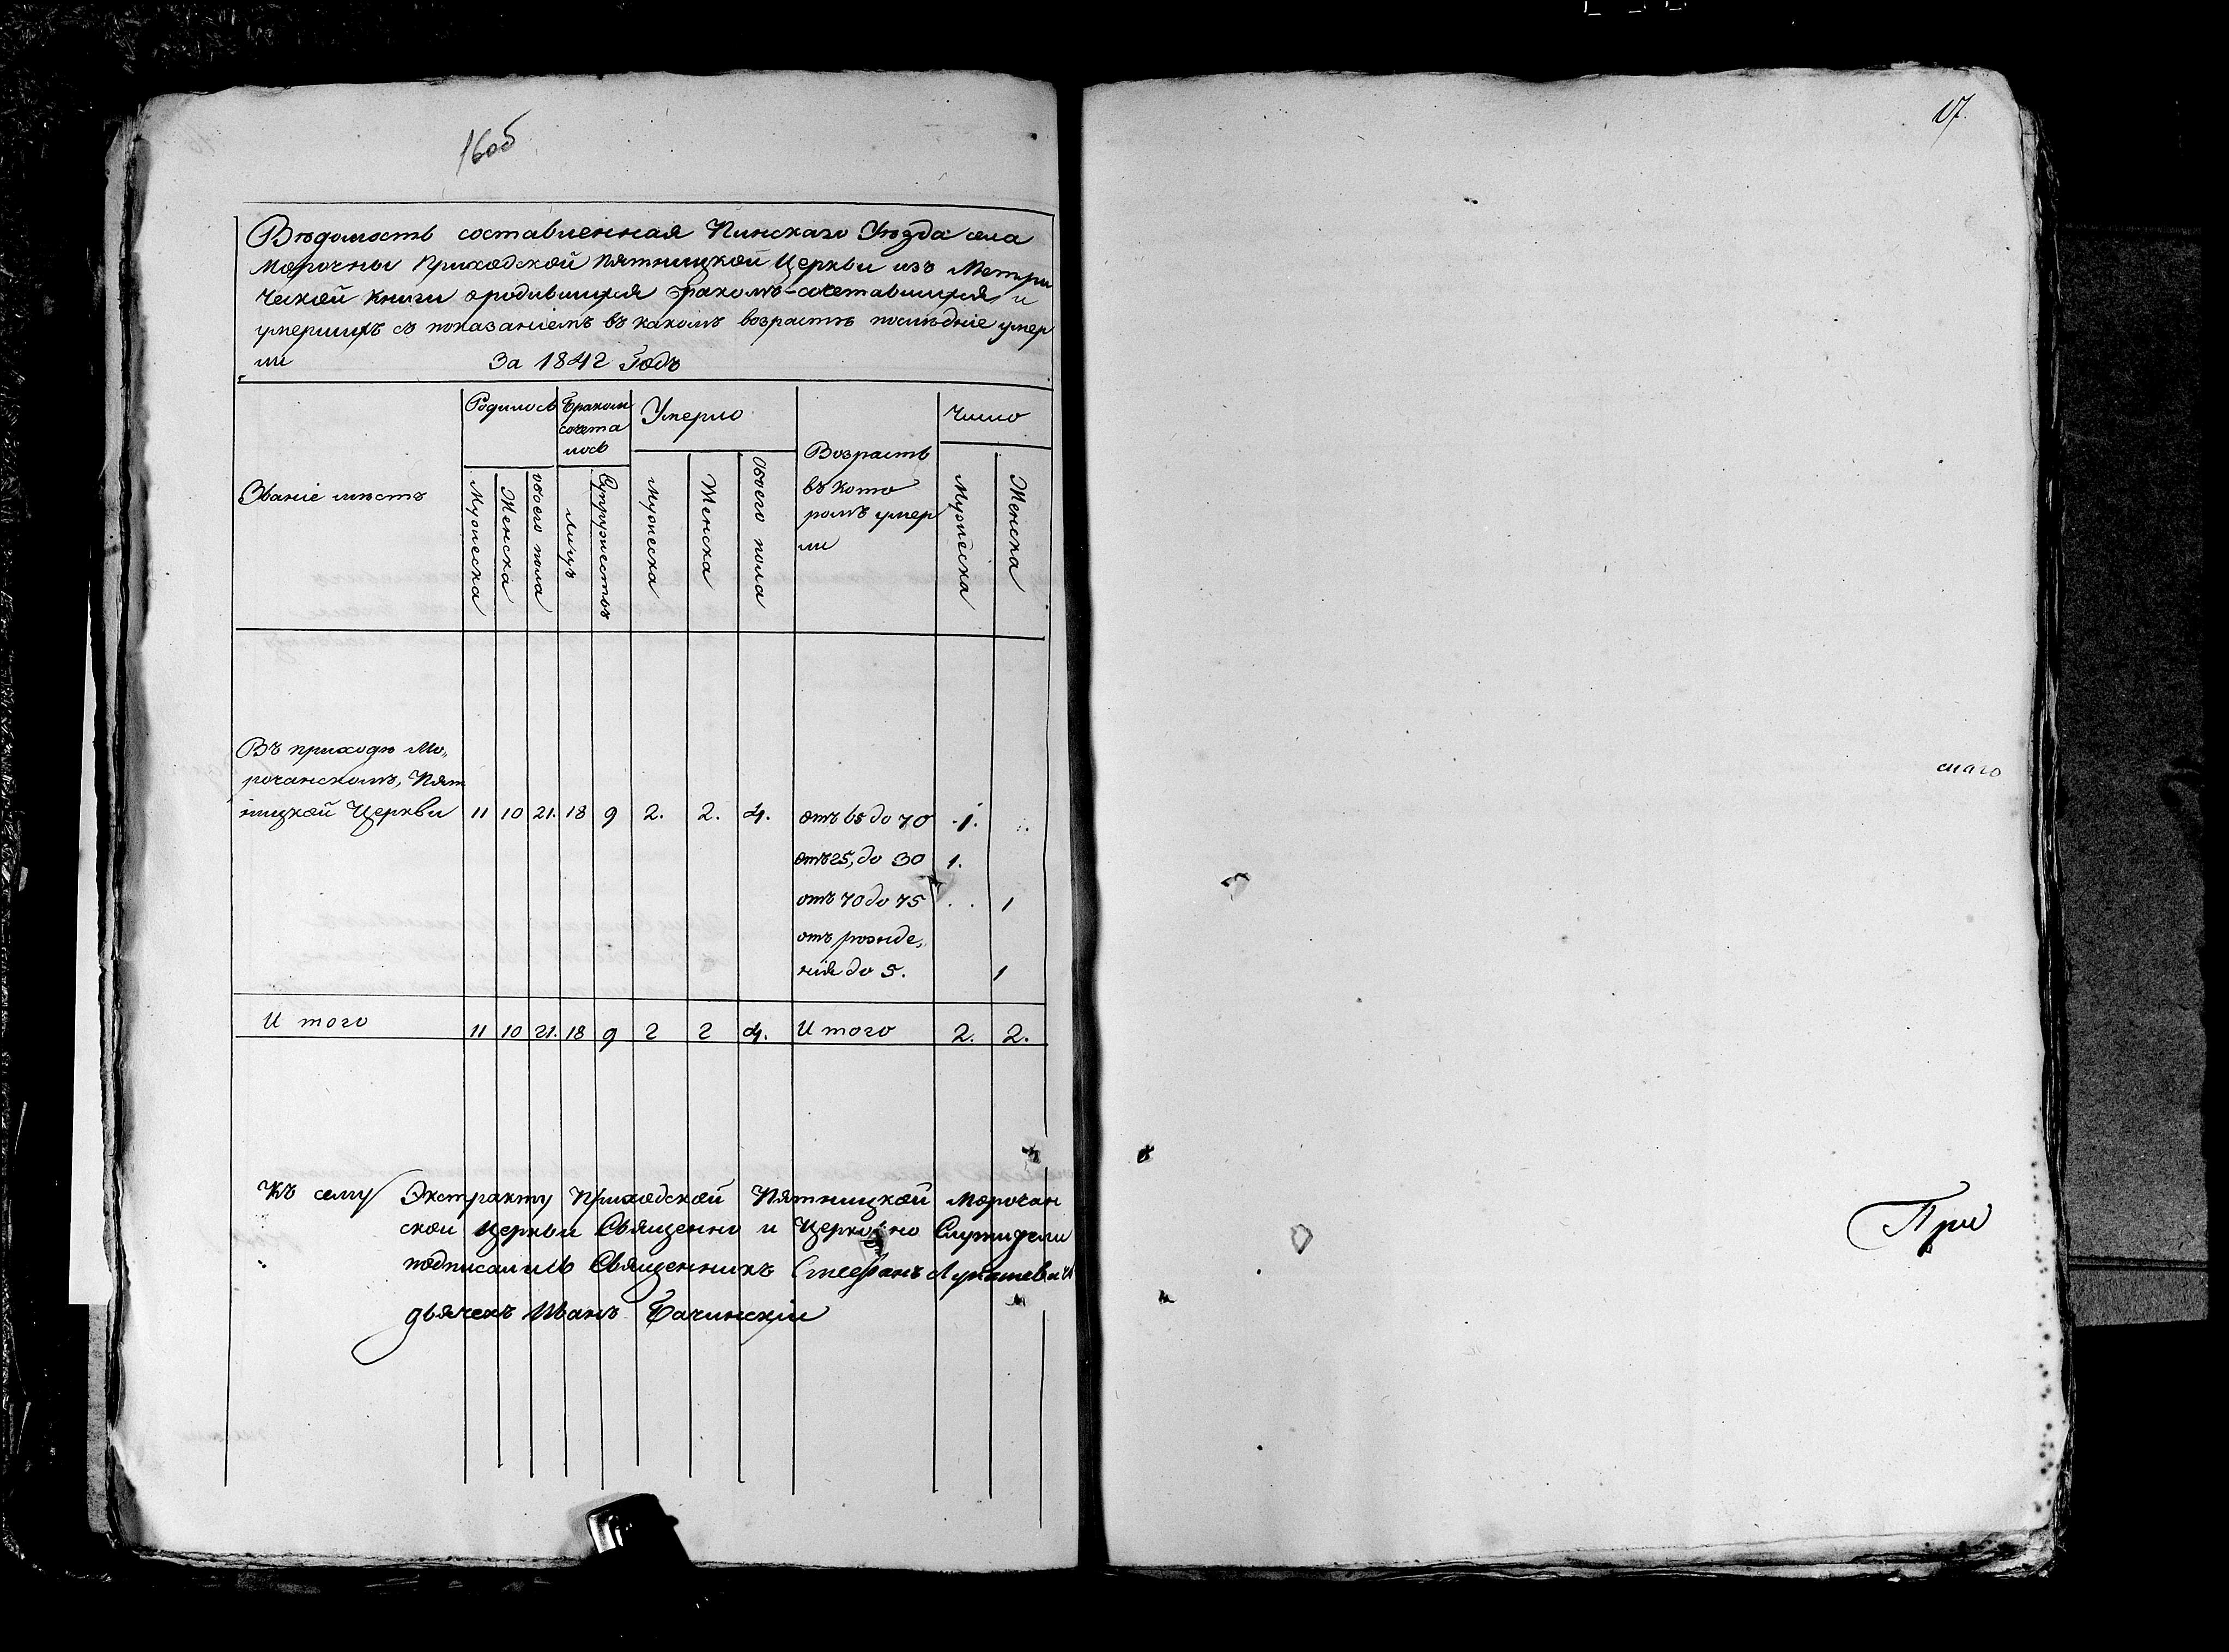 16об
Вѣдомость составленная Пинскаго Уѣзда села
Морочны Приходской Пятницкой Церкви изъ Метри
ческой книги о родившихся бракомъ-сочетавшихся и
умершихъ съ показаніемъ въ какомъ возрастѣ послѣдніе умер
ли За 1842 Годъ
Званіе мѣстъ
Родилось
Мужеска
Женска
обоего пола
Браком
сочета
лось
лицъ
Супружествъ
Умерло
Мужеска
Женска
Обоего пола
Возрастъ
въ кото
ромъ умер
ли
Число
Мужеска
Женска
Въ приходѣ Мо„
рочанскомъ, Пят
ницкой Церкви 11 10 21. 18 9 2. 2. 4. отъ 65 до 70 1.
отъ 25, до 30 1.
отъ 70 до 75 . . 1
отъ рожде„
нія до 5. 1
И того 11 10 21. 18 9 2 2 4. И того 2. 2.
Къ сему Экстракту Приходской Пятницкой Морочан
ской Церкви Священно и Церковно Служители
подписались Священникъ Стефанъ Лукашевичъ
дьячекъ Иванъ Бачинскій
17.
снаго
При